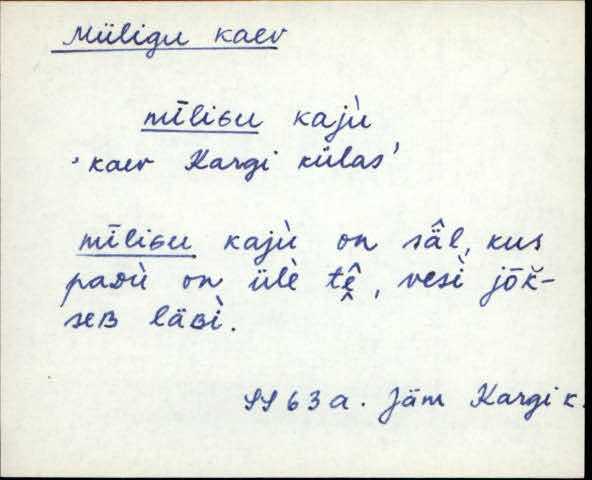 Müligu kaev
mīliɢu kajù
'kaev Kargi külas'
mīliɢu kajù on sä̂l, kus
paᴅù on ülè tê̬, vesì jōk̆-
seʙ läʙì.
SS 63a. Jäm Kargi k.